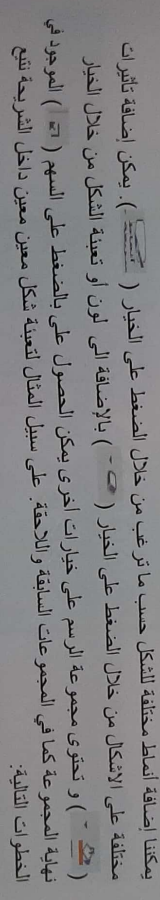 يمكننا إضافة أنماط مختلفة للشكل حسب ما ترغب من خلال الضغط على الخيار ( ). يمكن إضافة تأثيرات
مختلفة على الاشكال من خلال الضغط على الخيار ( ) بالإضافة الى لون او تعبئة الشكل من خلال الخيار
( ) و تحتوى مجموعة الرسم على خيارات اخرى يمكن الحصول على بالضغط على السهم ( ) الموجود في
نهاية المجموعة كما في المجموعات السابقة واللاحقة. على سبيل المثال لتعبئة شكل معين معين داخل الشريحة نتبع
الخطوات التالية: